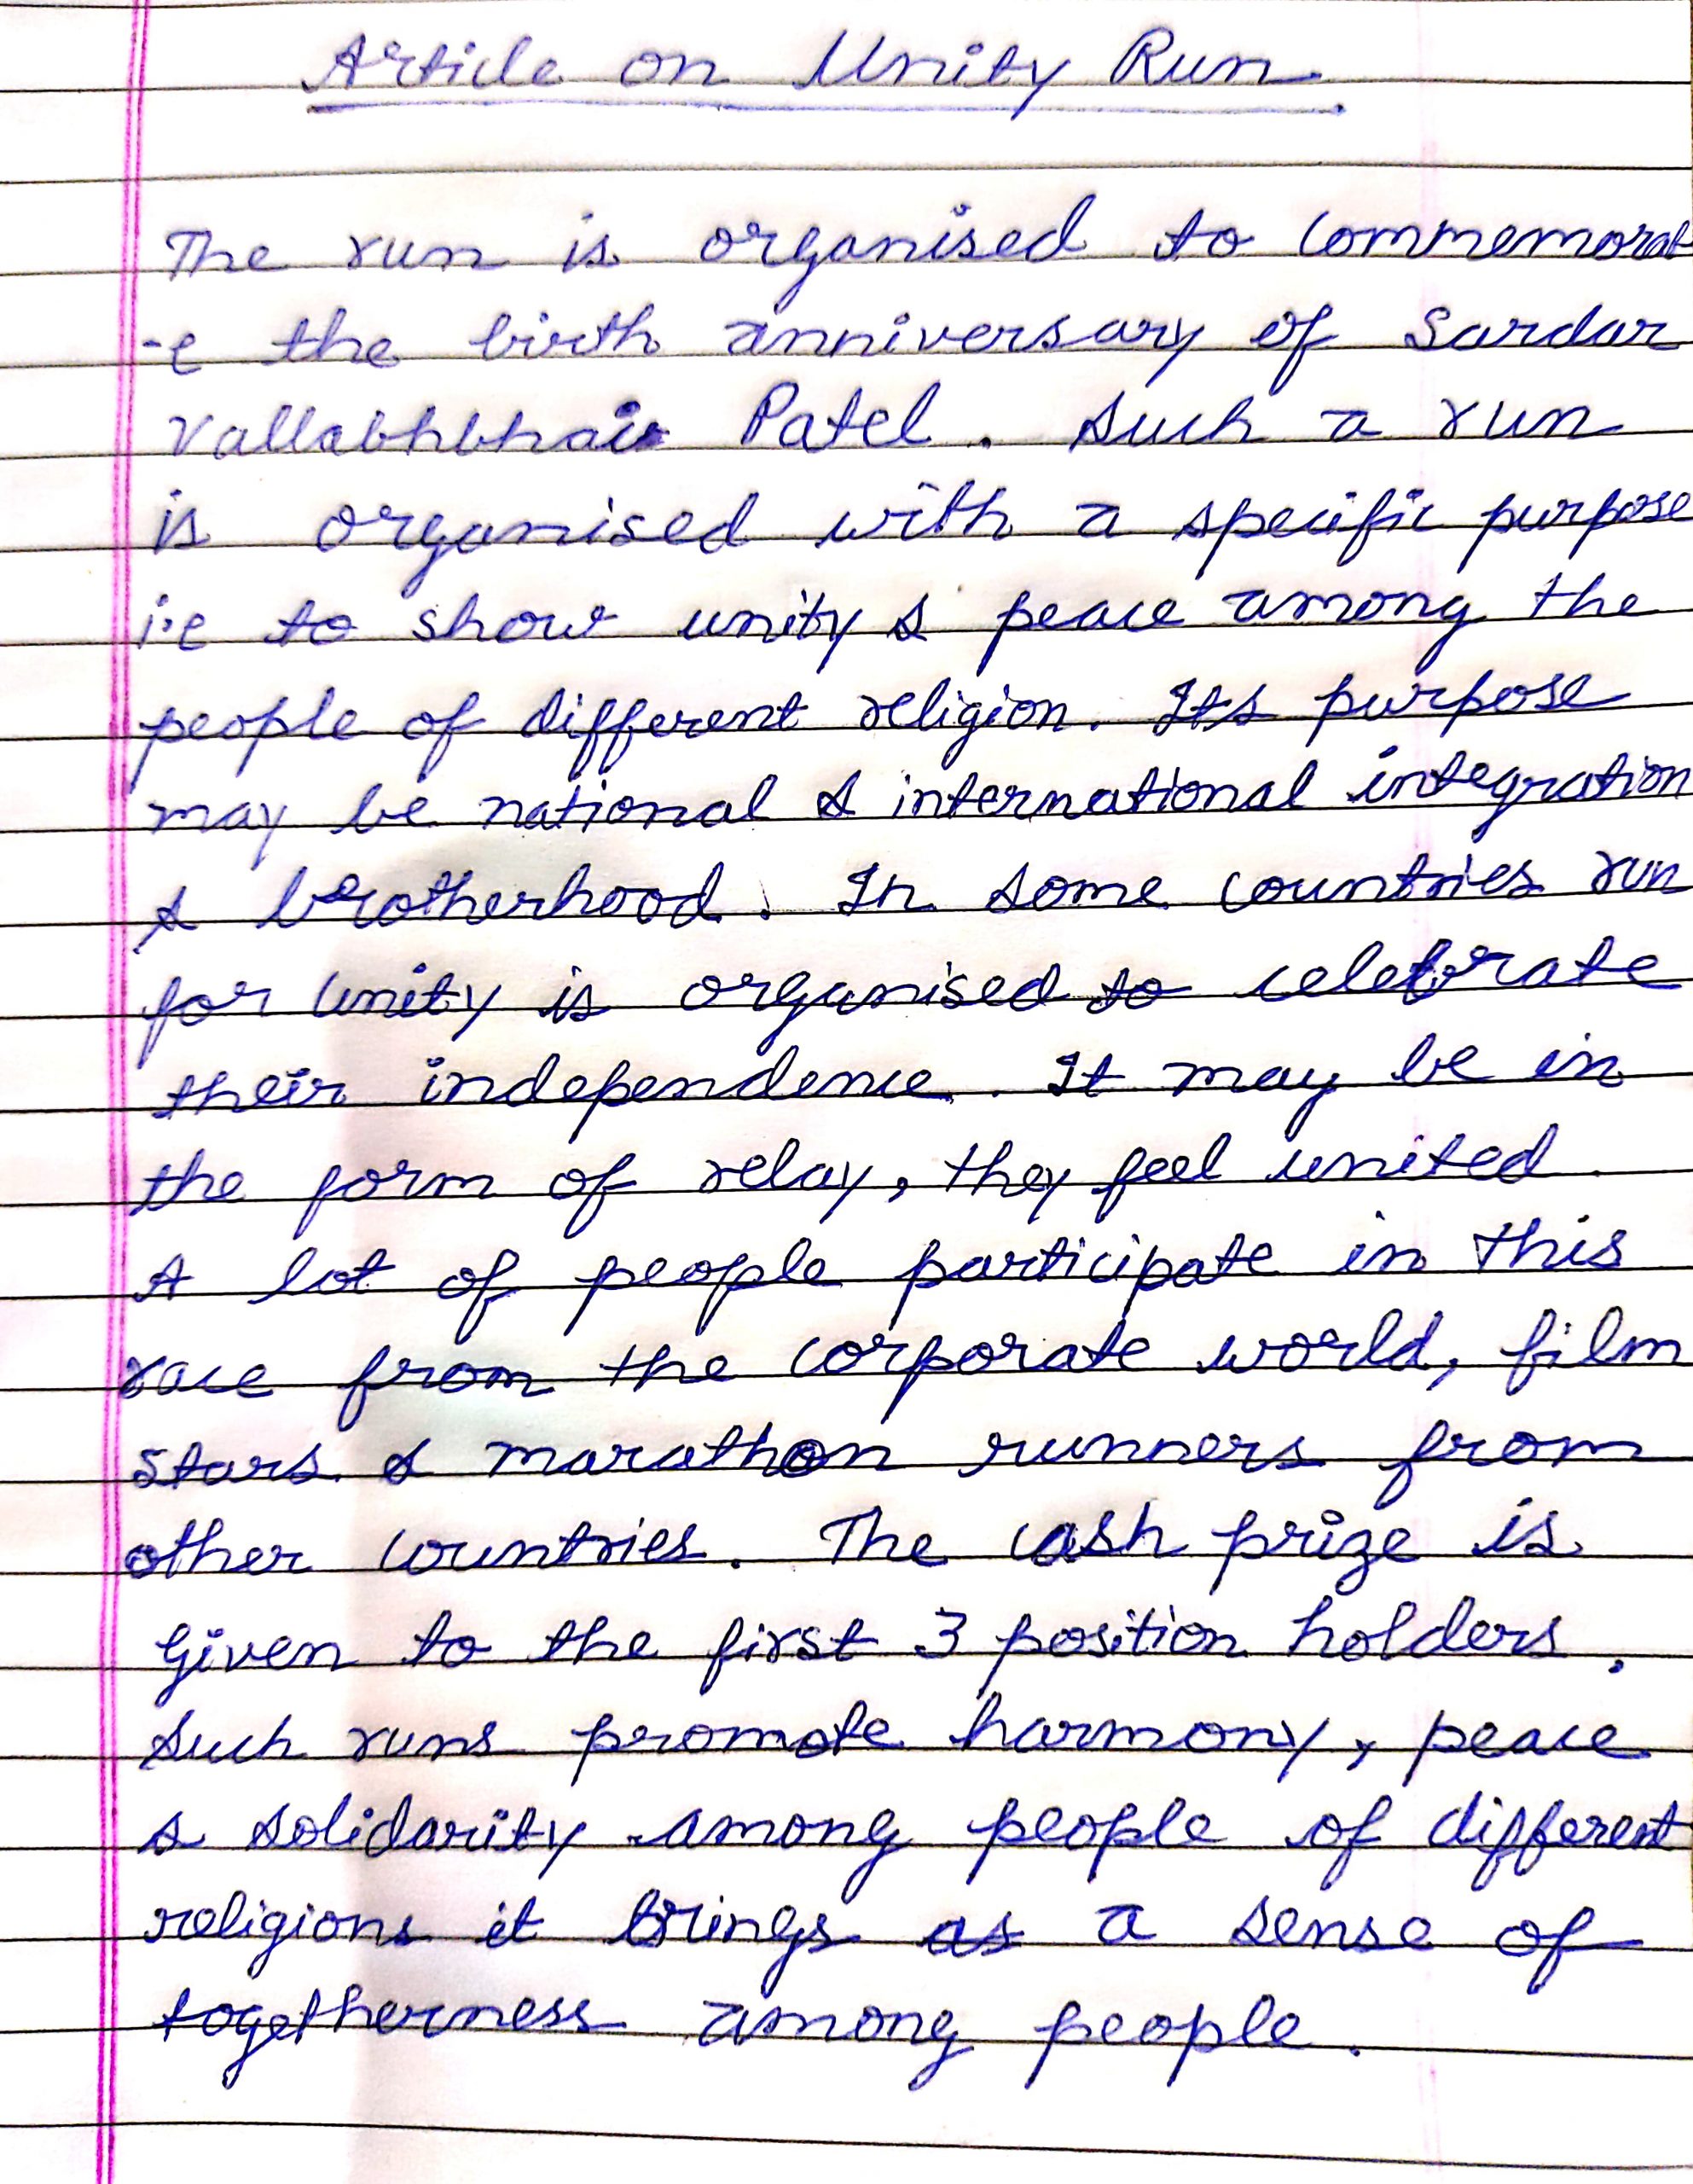 Article on Unity Run.
The run is organised to Commemorat
-e the birth anniversary of Sardar
Vallabhbhai Patel. Such a run
is organised with a specific purpose
i.e to show unity & peace among the
people of different religion. Its purpose
may be national & international integration
& brotherhood. In some countries run
for Unity is organised to celebrate
their independence. It may be in
the form of relay, they feel united.
A lot of people participate in this
race from the corporate world, film
stars & marathon runners from
other countries. The cash prize is
given to the first 3 position holders.
Such runs promote harmony, peace
& solidarity among people of different
religions it brings as a sense of
togetherness among people.